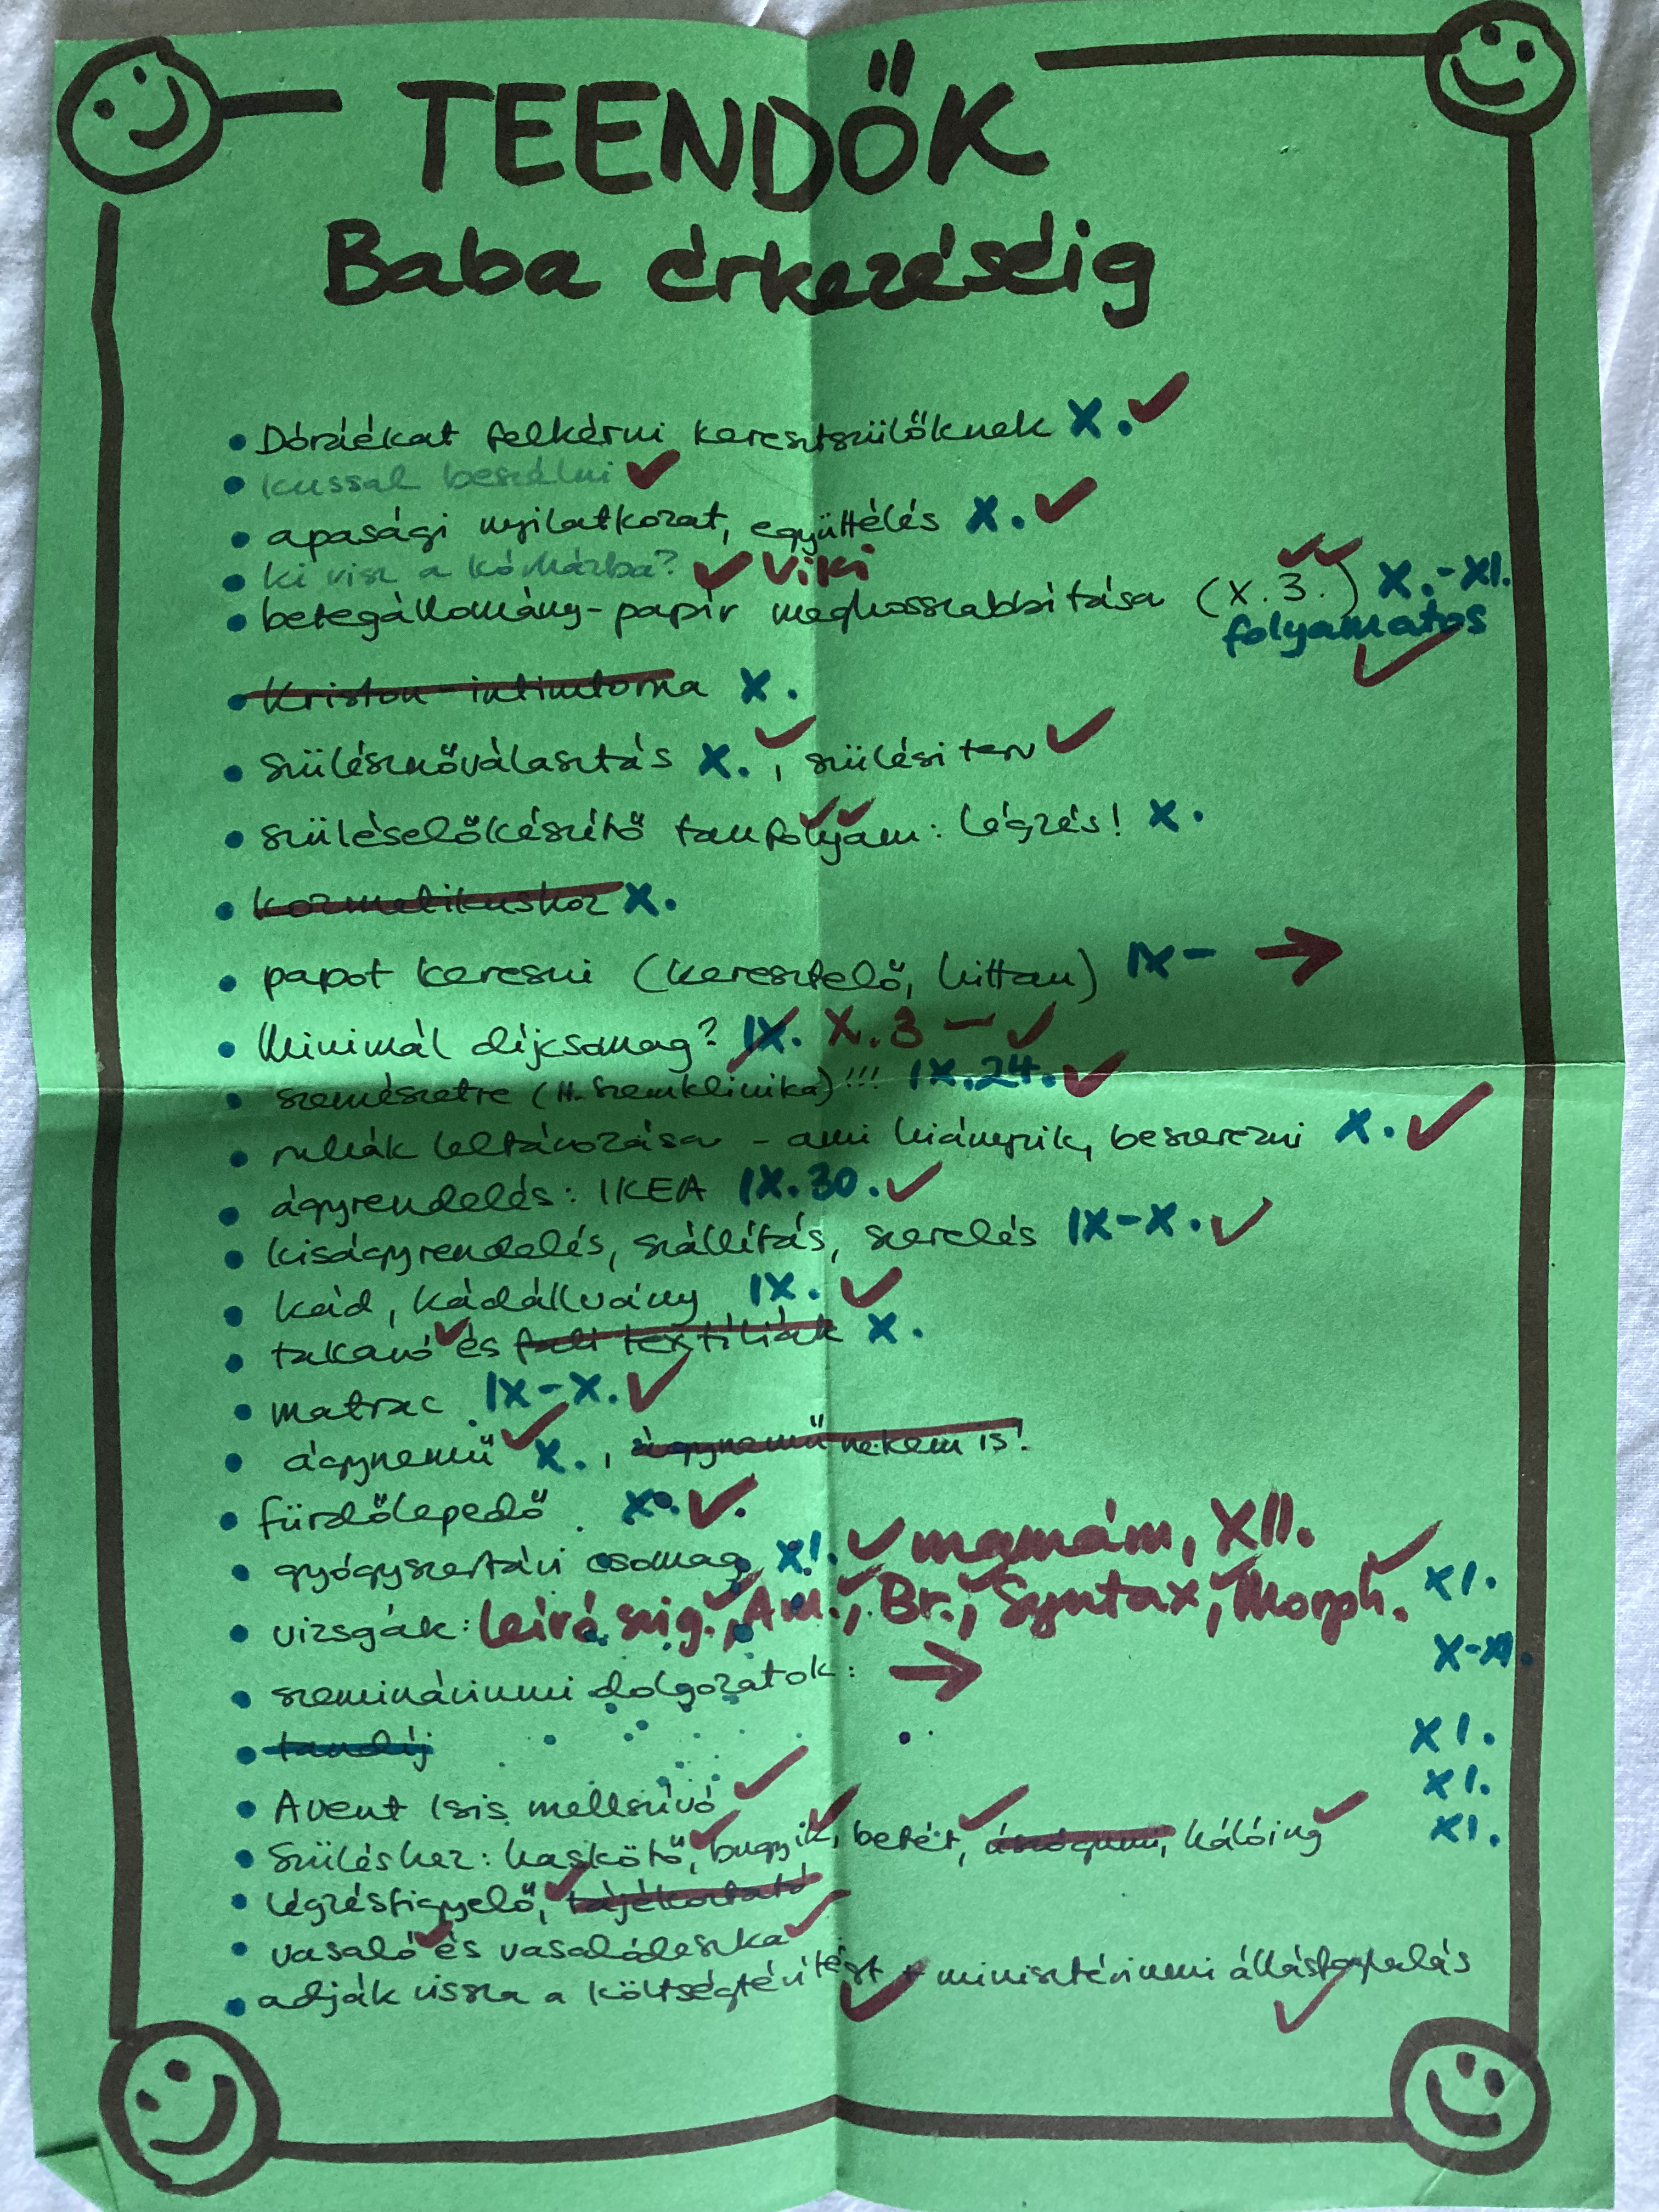 TEENDŐK
Baba érkezéséig
• Dóráékat felkérni keresztszülőknek X. ✓
• beszélni ✓
• apasági nyilatkozat, együttélés X. ✓
• ki visz a kórházba? ✓ Viki
• betegállomány-papír meghosszabbítása (X.3.) ✓✓ X.-XI.
folyamatos ✓
• Kriston-intimtorna X.
• szülésznőválasztás X. ✓, szülési terv ✓
• szüléselőkészítő tanfolyam: légzés! ✓✓ X.
• kozmetikushoz X.
• papot keresni (keresztelő, hittan) IX- →
• Minimál díjcsomag? IX. X.3 - ✓
• szemészetre (H. Szemklinika)!!! IX.24. ✓
• ruhák leltározása - ami hiányzik, beszerezni X. ✓
• ágyrendelés: IKEA IX.30. ✓
• kiságyrendelés, szállítás, szerelés IX-X. ✓
• kád, kádállvány IX. ✓
• takaró ✓ és fali textíliák X.
• matrac IX-X. ✓
• ágynemű ✓ X., ágynemű nekem is!
• fürdőlepedő X. ✓
• gyógyszertári csomag XI. ✓ mamám, XII.
• vizsgák: leíró szig. ✓, Am. ✓, Br. ✓, Syntax ✓, Morph. ✓ XI.
• szemináriumi dolgozatok: → X-XI.
• tandíj XI.
• Avent Isis mellszívó ✓ XI.
• Szüléshez: haskötő ✓, bugyik ✓, betét ✓, hálóing ✓ XI.
• légzésfigyelő ✓, tájékoztató
• vasaló ✓ és vasalódeszka ✓
• adják vissza a költségtérítést ✓ + minisztériumi állásfoglalás ✓